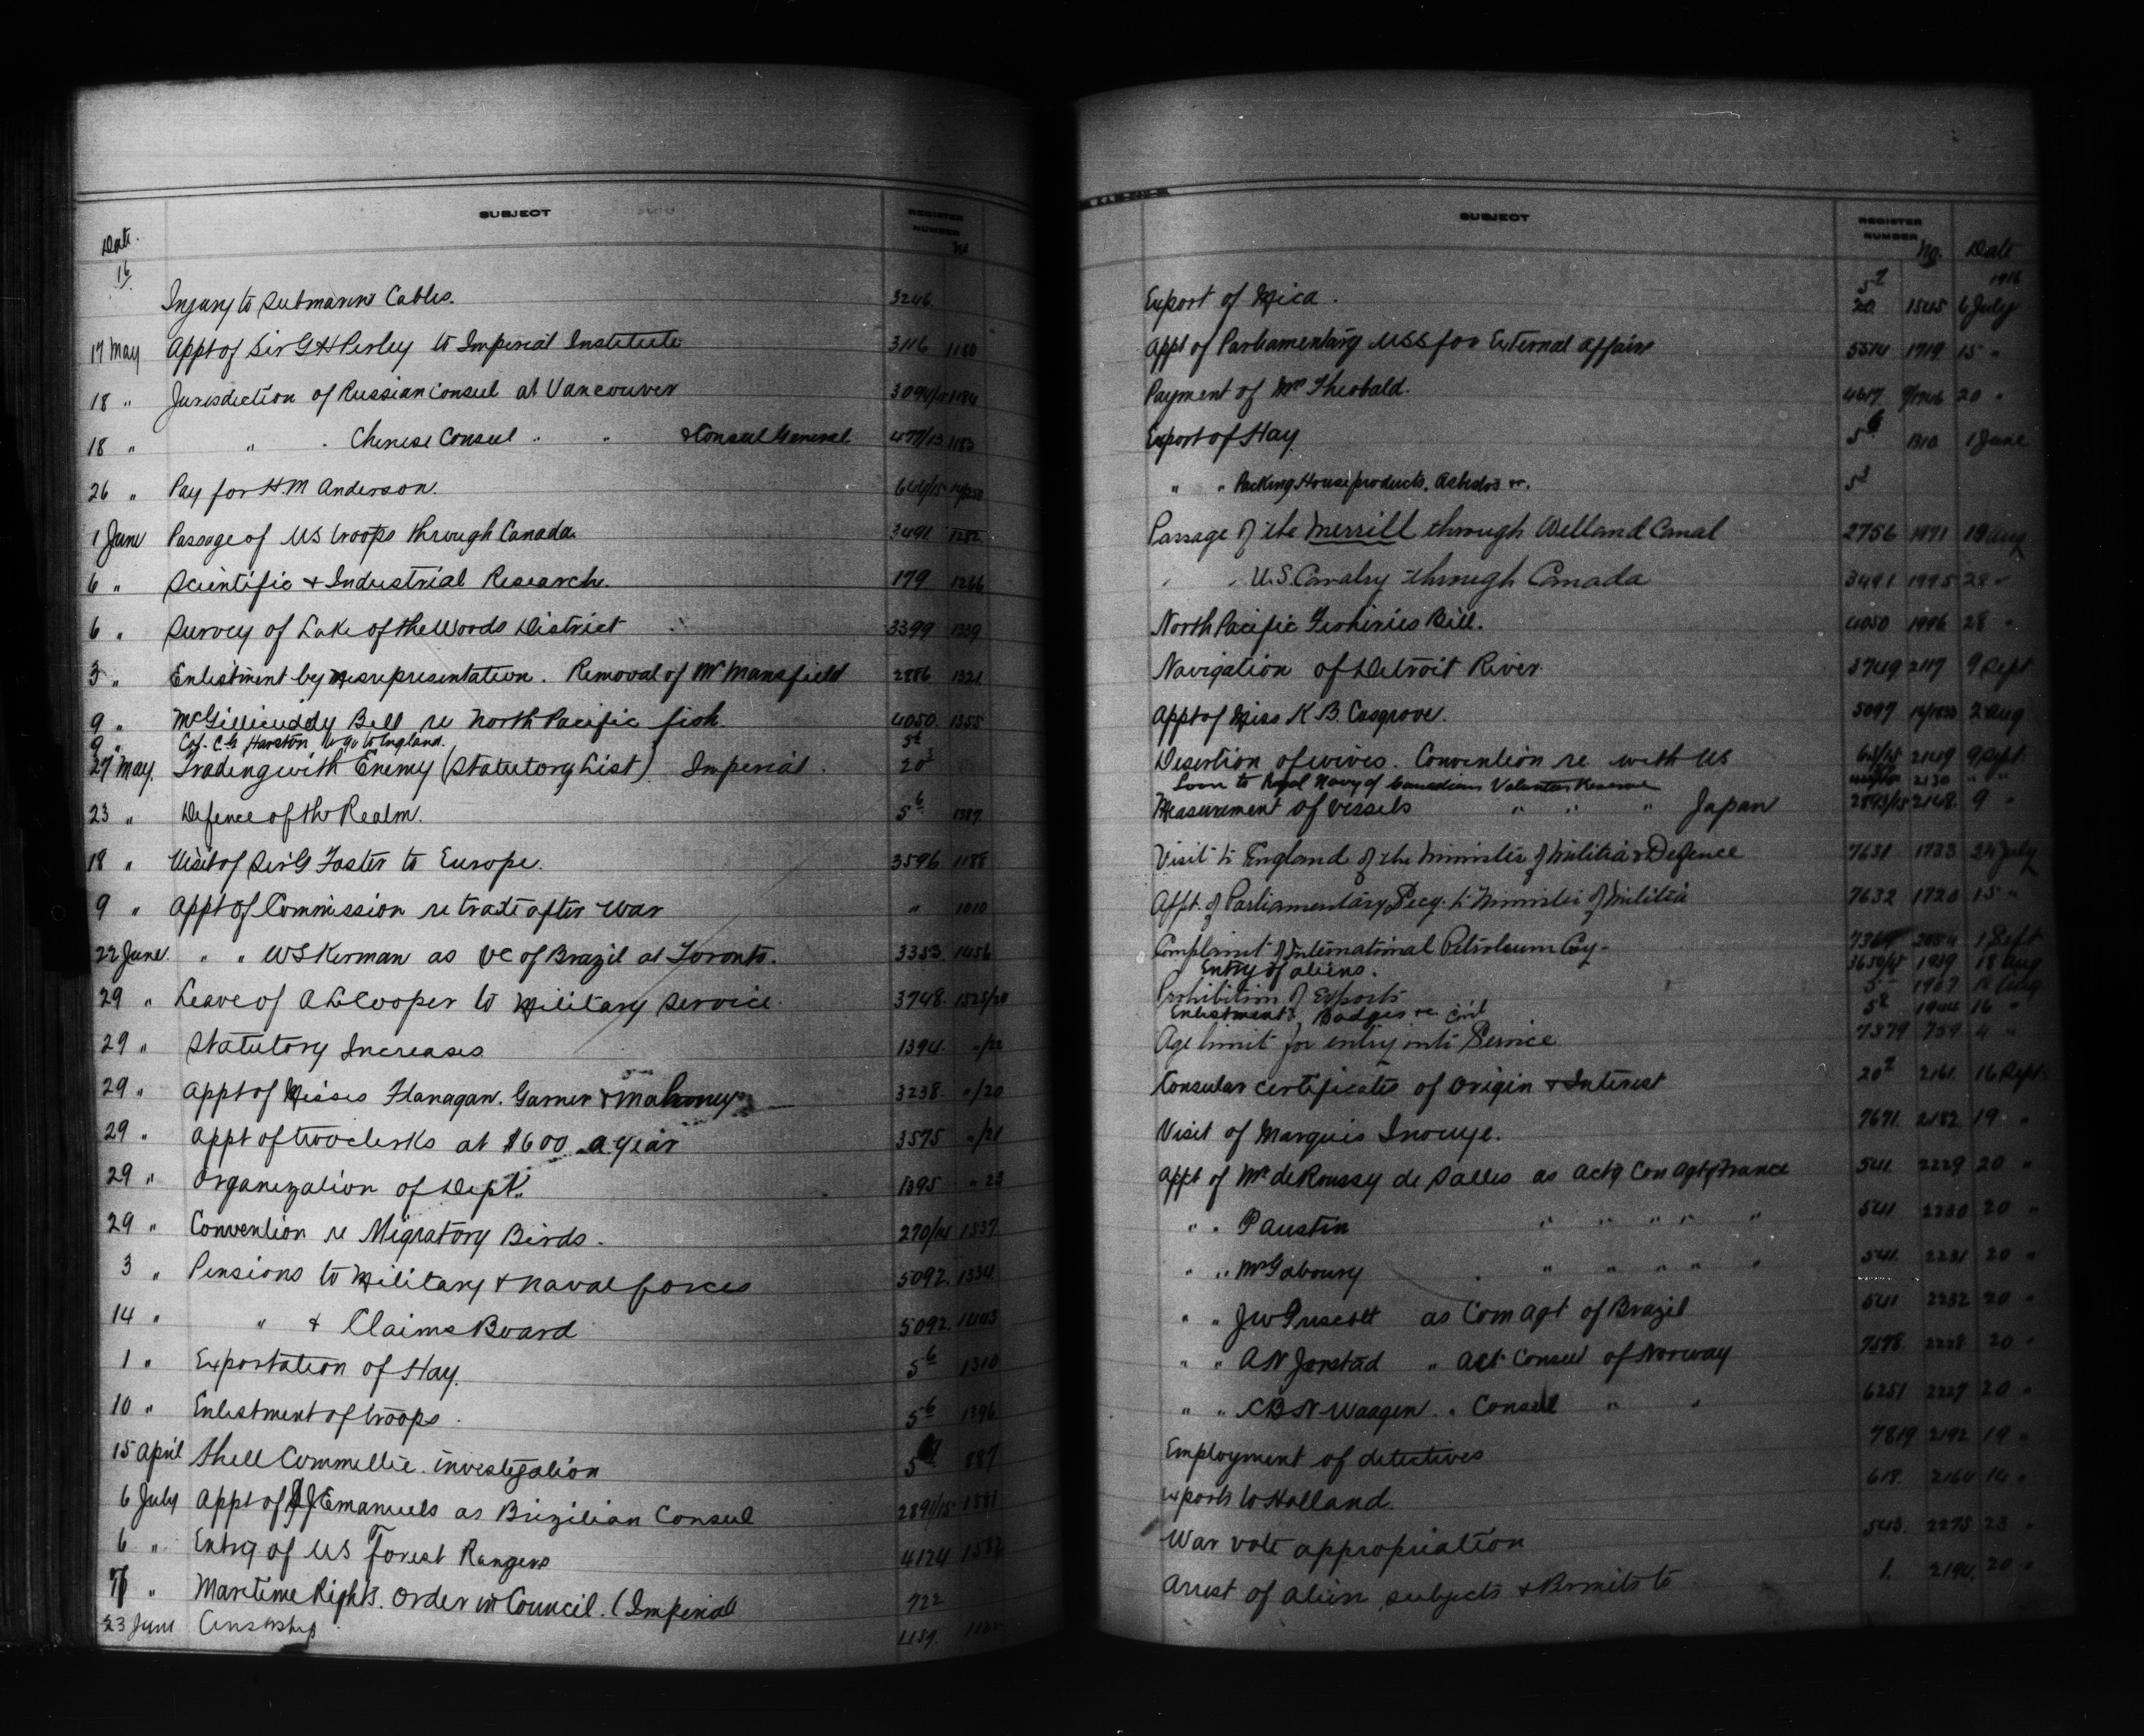 SUBJECT REGISTER NUMBER No
Date
16
Injury to Submarine Cables. 3246
17 May Appt of Sir G H Perley to Imperial Institute 3116 1180
18 " Jurisdiction of Russian Consul at Vancouver 3094/15 1184
18 " " " Chinese Consul " " & Consul General 477/13 1183
26 " Pay for H.M Anderson. 644/15
1 June Passage of US troops through Canada. 3491 1282
6 " Scientific & Industrial Research. 179 1266
6 " Survey of Lake of the Woods District 3399 1339
3 " Enlistment by misrepresentation. Removal of Mr Mansfield 2886 1321
9 " McGillicuddy Bill re North Pacific fish. 4050. 1355
9 " to go to England.
27 May. Trading with Enemy (Statutory List) Imperial. 20³
23 " Defence of the Realm. 5⁶ 1387
18 " Visit of Sir G Foster to Europe. 3596 1188
9 " Appt of Commission re trade after war " 1010
22 June. " " W S Kerman as VC of Brazil at Toronto. 3353. 1456
29 " Leave of A L Cooper to Military Service. 3748. 1525/20
29 " Statutory Increases 1394. "/22
29 " Appt of Misses Flanagan. Garner & Mahoney 3238. "/20
29 " Appt of two clerks at $600 a year 3575 "/21
29 " Organization of Dept. 1395 " 23
29 " Convention re Migratory Birds. 270/14 1537
3 " Pensions to Military & naval forces 5092. 1334
14 " " & Claims Board 5092. 1403
1 " Exportation of Hay. 5⁶ 1310
10 " Enlistment of troops. 5⁶ 1396
15 April Shell Committee investigation 5 887
6 July Appt of J Emanuels as Brizilian Consul 2891/15 1581
6 " Entry of US Forest Rangers 4124 1582
" Maritime Rights. Order in Council. (Imperial 722
23 June Censorship
SUBJECT REGISTER NUMBER No. Date
1916
Export of Mica. 20 1545 6 July
Appt of Parliamentary USS for External Affairs 5514 1719 15 "
Payment of Mrs Theobald. 4617 20 "
Export of Hay 5⁶ 1310 1 June
" " Packing House products, Asbestos &c. 5³
Passage of the Merrill through Welland Canal 2756 1971 19 Aug
" " U.S. Cavalry through Canada 3491 1995 28 "
North Pacific Fisheries Bill. 4050 1996 28 "
Navigation of Detroit River 3749 2117 9 Sept
Appt of Miss K B. Cosgrove. 5097 2 Aug
Desertion of wives. Convention re with US 2149 9 Sept.
Loan to Royal Navy of Canadian Volunteer Reserve 2130 " "
Measurement of vessels " " " Japan 2893/15 2148. 9 "
Visit to England of the Minister of Militia & Defence 7631 1733 24 July
Appt. of Parliamentary Secy. to Minister of Militia 7632 1720 15 "
Complaint of International Petroleum Coy. 1 Sept
Entry of aliens. 3650/15 1959 18 Aug
Prohibition of Exports 1967
Enlistment, Badges re Civil 5⁸ 1944 16 "
Age limit for entry into Service 7379 759 4 "
Consular certificates of Origin & Interest 20² 2161 16 Sept.
Visit of Marquis Inouye. 7671. 2182. 19 "
Appt of Mr de Roussy de Salles as Actg Con Agt of France 541 2229 20 "
" " P Austin " " " " " 541 2230 20 "
" " Mr Gaboury " " " " " 541. 2231 20 "
" " J W as Com Agt of Brazil 541 2232 20 "
" " A N Jorstad " Act Consul of Norway 7578. 2228 20 "
" " C B N Waagen " Consul " " 6251 2227 20 "
Employment of detectives 7819 2192 19 "
Exports to Holland. 618. 2164 14 "
War vote appropriation 543. 2275 23 "
Arrest of alien subjects & Permits to 1. 2194. 20 "